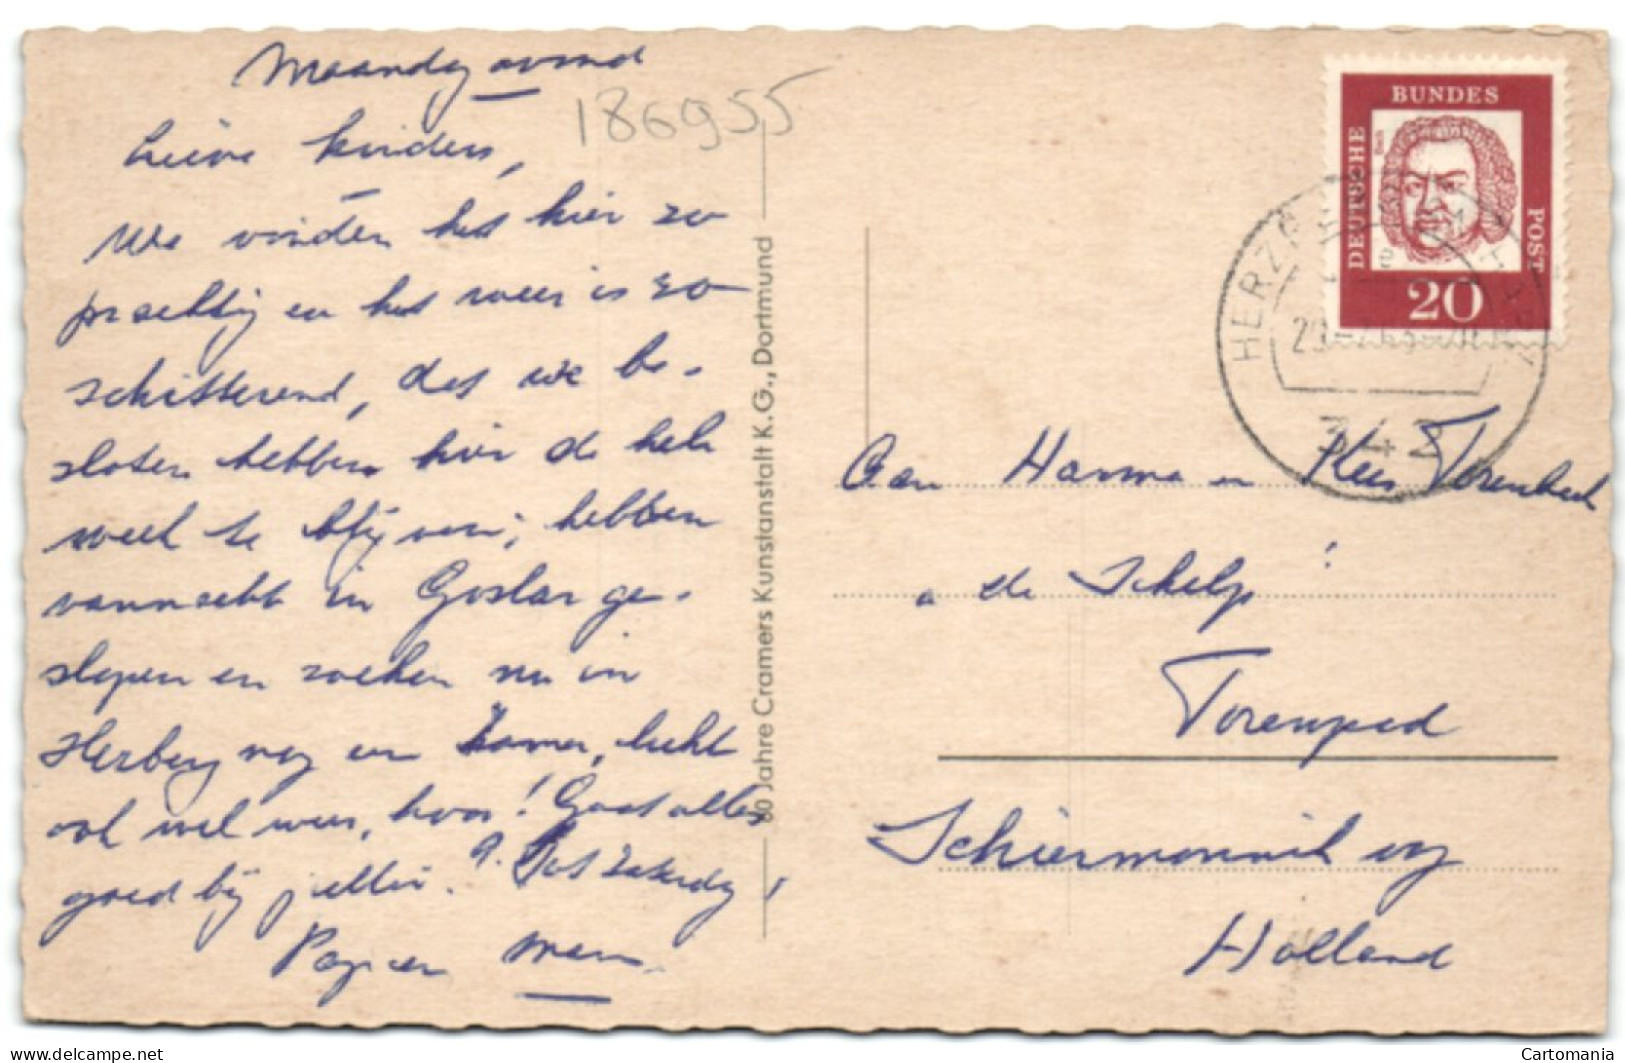 Maandag avond
186955
Lieve kinders,
We vinden het hier zo
prachtig en het weer is zo
schitterend, dat we be-
sloten hebben hier de hele
week te blijven; hebben
vannacht in Goslar ge-
slapen en zoeken nu in
Herzberg nog een kamer, lucht
ook wel weer, hoor! Gaat alles
goed bij jullie? Tot Zaterdag!
Pap en Mam.
60 Jahre Cramers Kunstanstalt K.G., Dortmund
DEUTSCHE
BUNDES
POST
20
HERZBERG
342
Aan Harma en Kees Torenbeek
a de Schelp!
Torenpad
Schiermonnikoog
Holland
www.delcampe.net
Cartomania